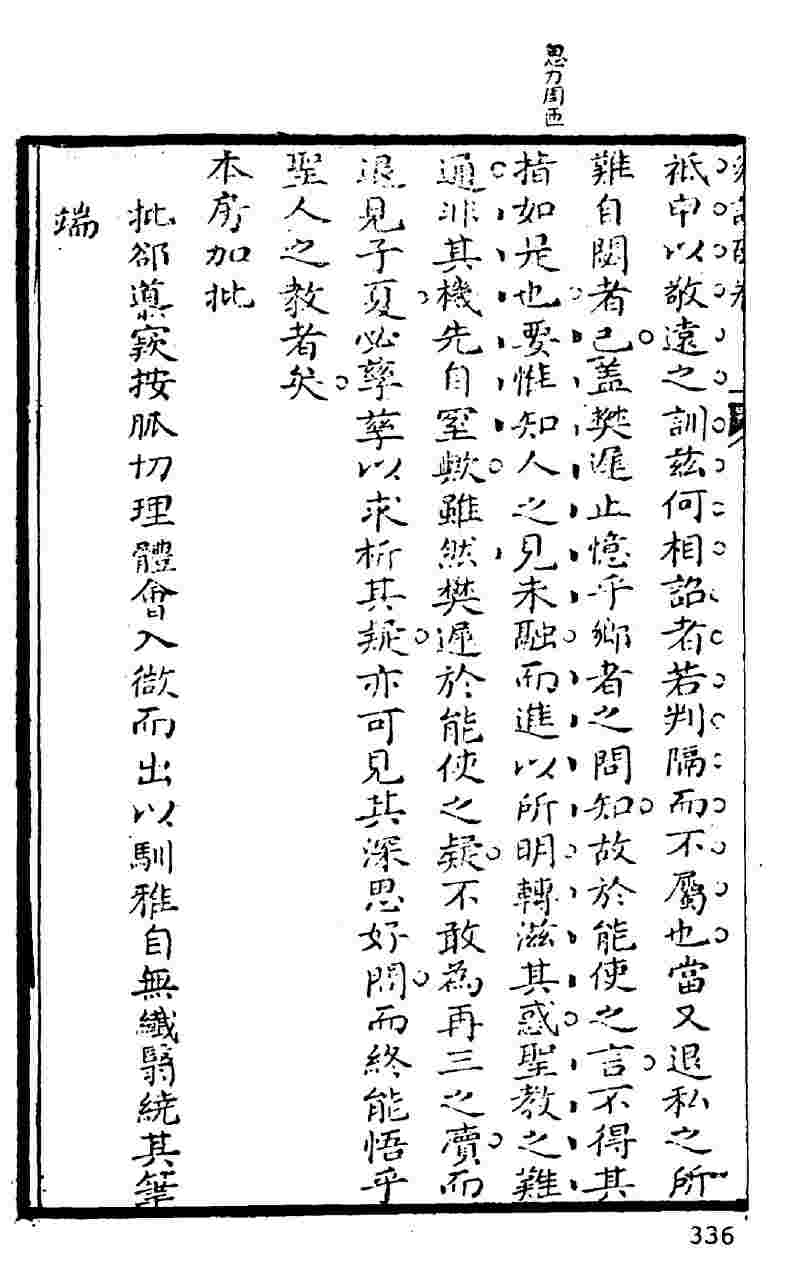 思力周匝
祇申以敬遠之訓茲何相詔者若判隔而不屬也當又退私之所
難自閟者已蓋樊遲止憶乎鄉者之問知故於能使之言不得其
指如是也要惟知人之見未融而進以所明轉滋其惑聖教之難
通非其機先自窒歟雖然樊遲於能使之疑不敢為再三之瀆而
退見子夏必孳孳以求析其疑亦可見其深思好問而終能悟乎
聖人之教者矣
本房加批
批郤導窾按脈切理體會入微而出以馴雅自無纖翳繞其筆
端
336